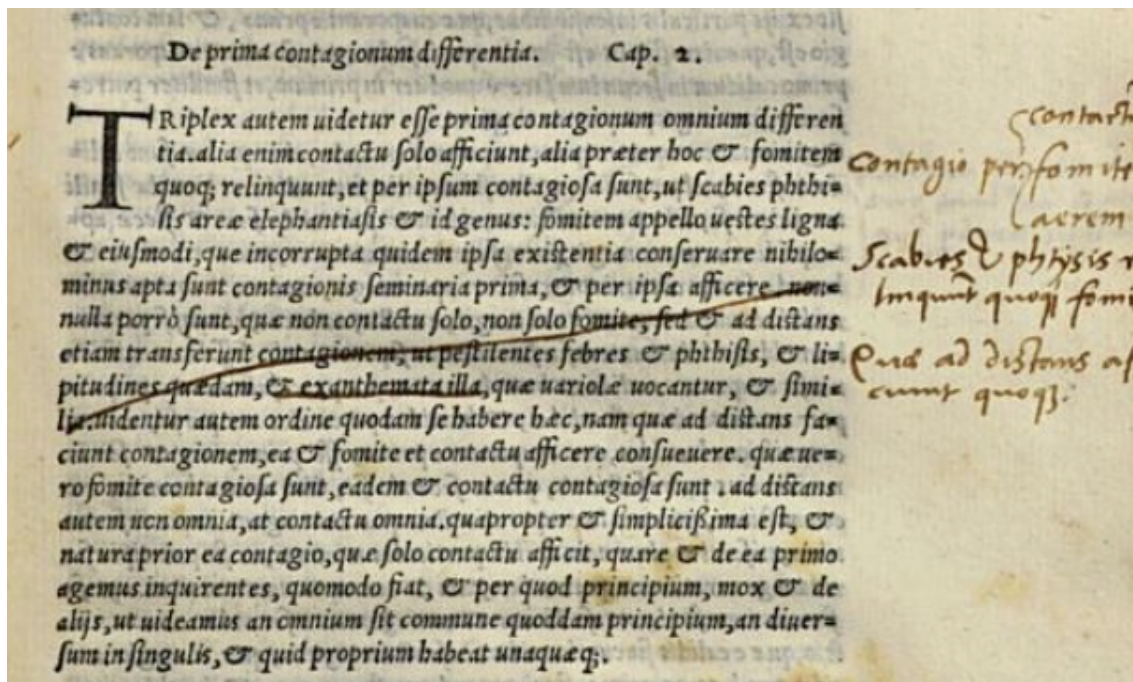 De prima contagionum differentia. Cap. 2.
TRiplex autem uidetur esse prima contagionum omnium differen
tia. alia enim contactu solo afficiunt, alia præter hoc & fomitem
quoq; relinquunt, et per ipsum contagiosa sunt, ut scabies phthi-
sis areæ elephantiasis & id genus: fomitem appello uestes ligna
& eiusmodi, que incorrupta quidem ipsa existentia conseruare nihilo-
minus apta sunt contagionis seminaria prima, & per ipsa afficere non-
nulla porrò sunt, quæ non contactu solo, non solo fomite, sed & ad distans
etiam transferunt contagionem, ut pestilentes febres & phthisis, & li-
pitudines quædam, & exanthemata illa, quæ uariolæ uocantur, & simi-
lia. uidentur autem ordine quodam se habere hæc, nam quæ ad distans fa-
ciunt contagionem, ea & fomite et contactu afficere consueuere. quæ ue-
ro fomite contagiosa sunt, eadem & contactu contagiosa sunt. ad distans
autem non omnia, at contactu omnia. quapropter & simplicißima est, &
natura prior ea contagio, quæ solo contactu afficit, quare & de ea primo
agemus inquirentes, quomodo fiat, & per quod principium, mox & de
alijs, ut uideamus an omnium sit commune quoddam principium, an diuer-
sum in singulis, & quid proprium habeat unaquæq;.
contact
Contagio per fomite
aerem
Scabies & phtysis
linqunt quoq fomi
Quæ ad distans af
ciunt quoq.